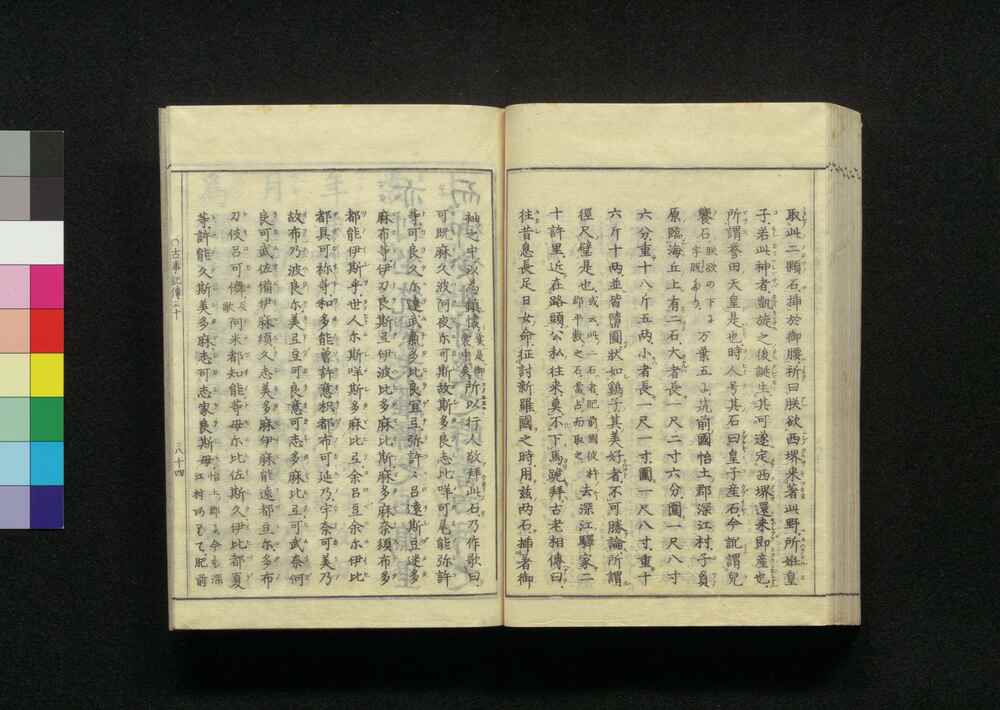 取此二顆石挿於御腰祈曰朕欲西堺來著此野所姙皇
子若此神者凱旋之後誕生其可遂定西堺還來即産也
所謂誉田天皇是也時人号其石曰皇子産石今訛謂兒
饗石 朕欲の下に字脱あり 万葉五に筑前國怡土郡深江村子負
原臨海丘上有二石大者長一尺二寸六分圍一尺八寸
六分重十八斤五两小者長一尺一寸圍一尺八寸重十
六斤十两並皆墮圓狀如鷄子其美好者不可勝論所謂
徑尺璧是也 或云此二石者肥前國彼杵郡平敷之石當占而取之 去深江驛家二
十許里近在路頭公私往來莫不下馬跪拜古老相傳曰
往昔息長足日女命征討新羅國之時用兹两石挿著御
袖之中以為鎮懐 實是御裳中矣 所以行人敬拜此石乃作歌曰
可既麻久波阿夜尓可斯故斯多良志比咩可尾能弥許
等可良久尓遠武氣多比良宜弖弥許々呂遠斯豆迷多
麻布等伊刀良斯弖伊波比多麻比斯麻多麻奈須布多
都能伊斯乎世人尓斯咩斯多麻比弖余呂豆余尓伊比
都具可祢等和多能曽許意枳都布可延乃宇奈可美乃
故布乃波良尓美弖豆可良意可志多麻比弖可武奈何
良可武佐備伊麻須久志美多麻伊麻能遠都豆尓多布
刀伎呂可儛 反歌 阿米都知能等母尓比佐斯久伊比都夏
等許能久斯美多麻志可志家良斯母 怡土郡に今も深江村ありて肥前
古事記傳三十
八十四